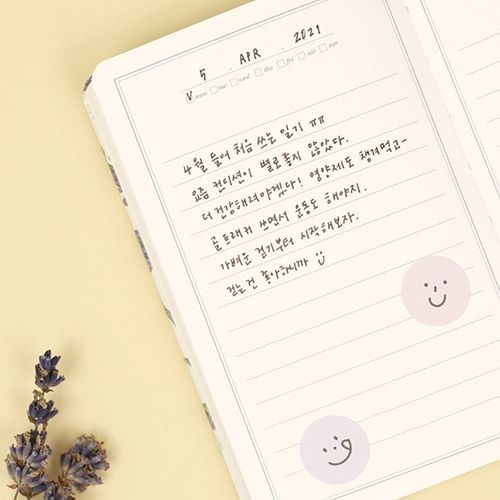 5 . APR . 2021
V mon tue wed thu fri sat sun
4월 들어 처음 쓰는 일기 ㅠㅠ
요즘 컨디션이 별로 좋지 않았다.
더 건강해져야겠다! 영양제도 챙겨먹고~
골트래커 쓰면서 운동도 해야지.
가벼운 걷기부터 시작해보자.
걷는건 좋아하니까